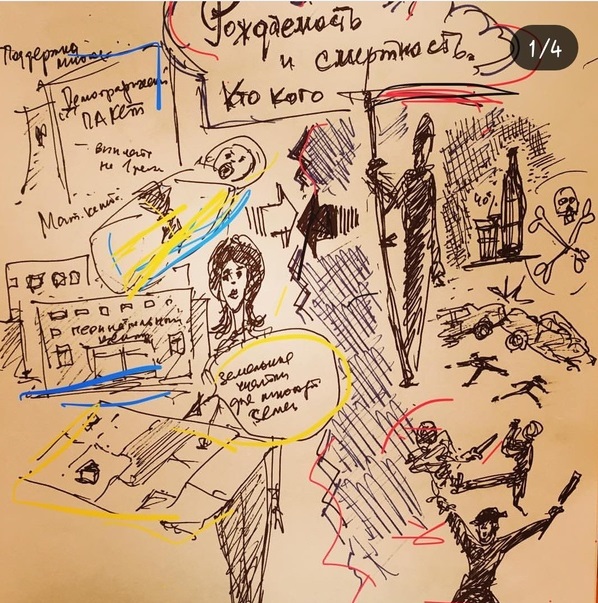 Рождаемость
и смертность.
Кто кого
1/4
Поддержка
Демографический
пакет
- выплаты
на 1 реб
Мат. капит.
40%
перинатальный
центр
земельные
участки
для многод
семей